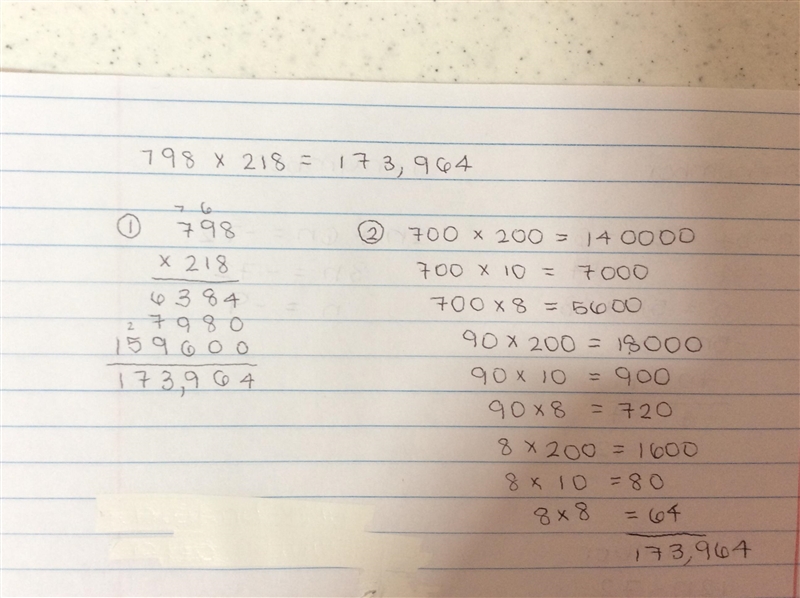 798 × 218 = 173,964
7 6
① 798
× 218
6384
2
7980
159600
173,964
② 700 × 200 = 140000
700 × 10 = 7000
700 × 8 = 5600
90 × 200 = 18000
90 × 10 = 900
90 × 8 = 720
8 × 200 = 1600
8 × 10 = 80
8 × 8 = 64
173,964